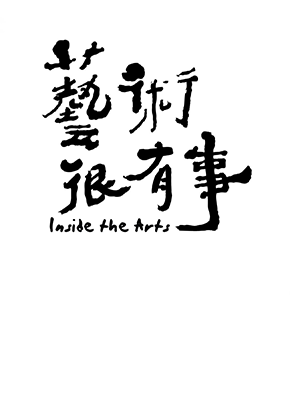 藝術
很有事
Inside the Arts